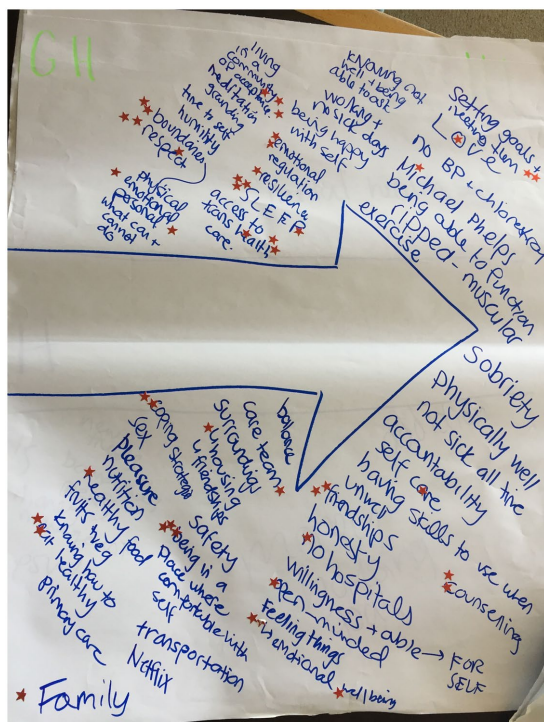 GH
living
in a
community
of acceptance
meditation
grounding
time to self
humility
boundaries
respect
physical
emotional
personal
what can +
cannot
do
knowing not
well + being
able to ask
working +
no sick days
being happy
with self
emotional
regulation
resilience
SLEEP
access to
trans health
care.
setting goals +
meeting them
LOVE
no BP + cholesterol
Michael Phelps
being able to function
ripped - muscular
exercise
sobriety
physically well
not sick all time
accountability
self care
having skills to use when
unwell
counselling
friendships
honesty
no hospitals
willingness + able → FOR
SELF
open-minded
feeling things
emotional wellbeing
balance
care team
surroundings
housing
friendships
safety
being in a
place where
comfortable with
self
transportation
Netflix
coping strategies
sex
pleasure
nutrition
healthy food
fruits + veg
knowing how to
eat healthy
primary care
Family